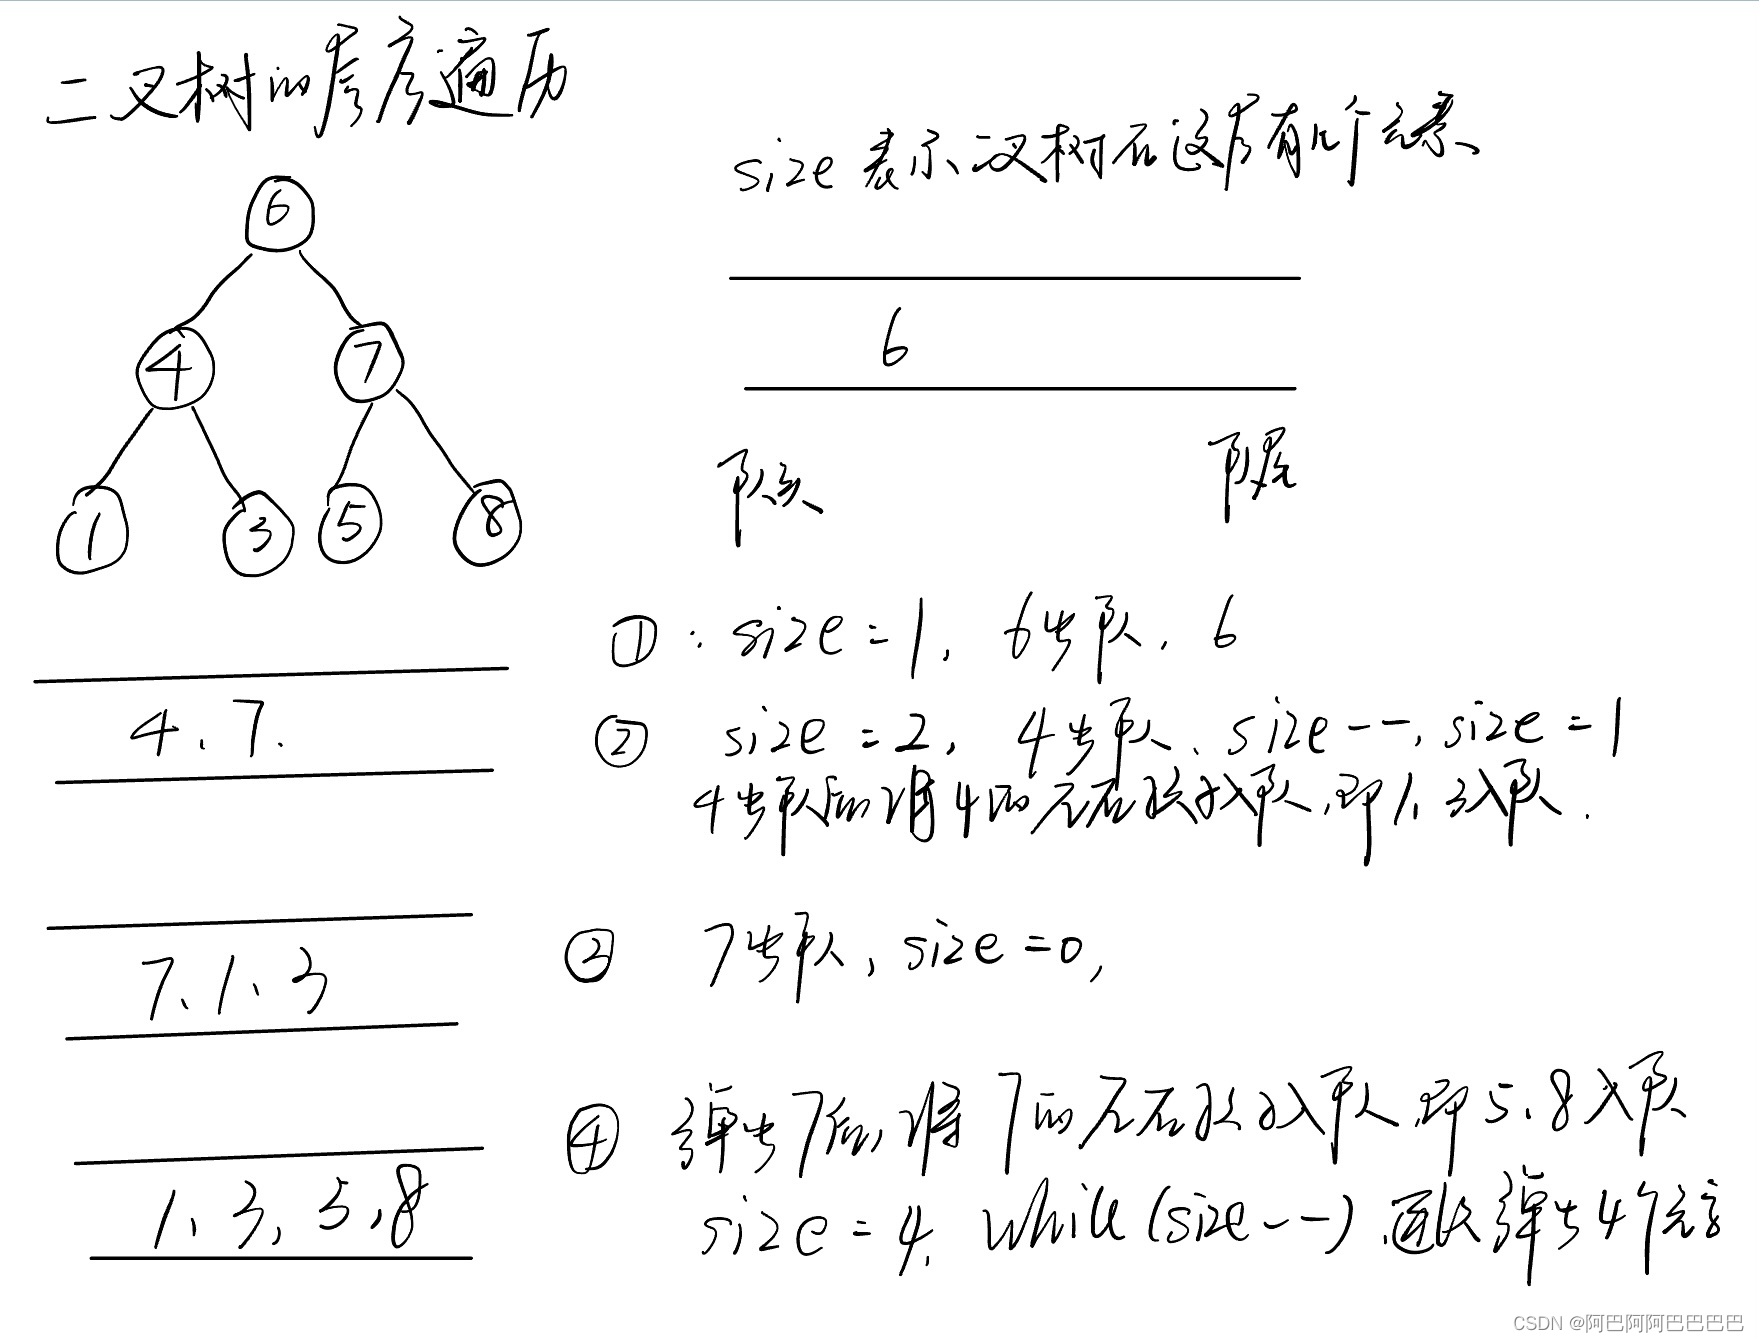 二叉树的层序遍历
size 表示二叉树在这层有几个元素、
6
4 7
1 3 5 8
6
队头 队尾
①: size = 1, 6出队, 6
4、7.
② size = 2, 4出队、size--, size = 1
4出队后,将4的左右孩子入队,即1、3入队.
7、1、3
③ 7出队, size = 0,
④ 弹出7后,将7的左右孩子入队,即5、8入队
1、3, 5,8
size = 4, while(size--),通过弹出4个元素
CSDN @阿巴阿阿巴巴巴巴